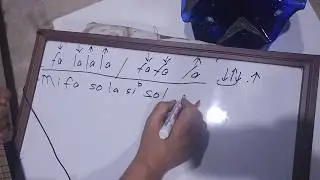 fa la la la / fa fa / a
Mi fa so la si° sol